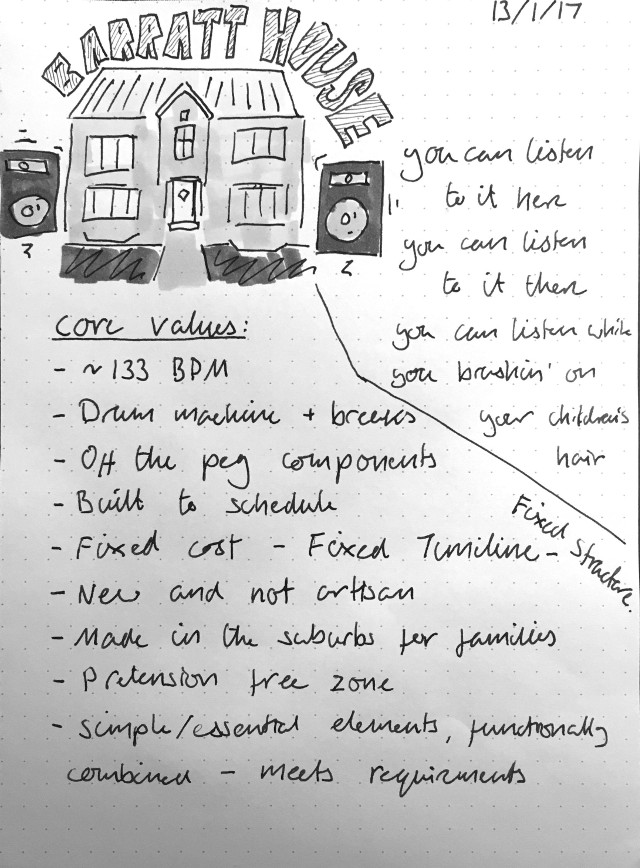 13/1/17
BARRATT HOUSE
you can listen
to it here
you can listen
to it there
you can listen while
you brushin' on
your children's
hair
core values:
- ~133 BPM
- Drum machine + breaks
- Off the peg components
- Built to schedule
- Fixed cost - Fixed Timeline -
Fixed Structure.
- New and not artisan
- Made in the suburbs for families
- Pretension free zone
- simple/essential elements, functionally
combined - meets requirments